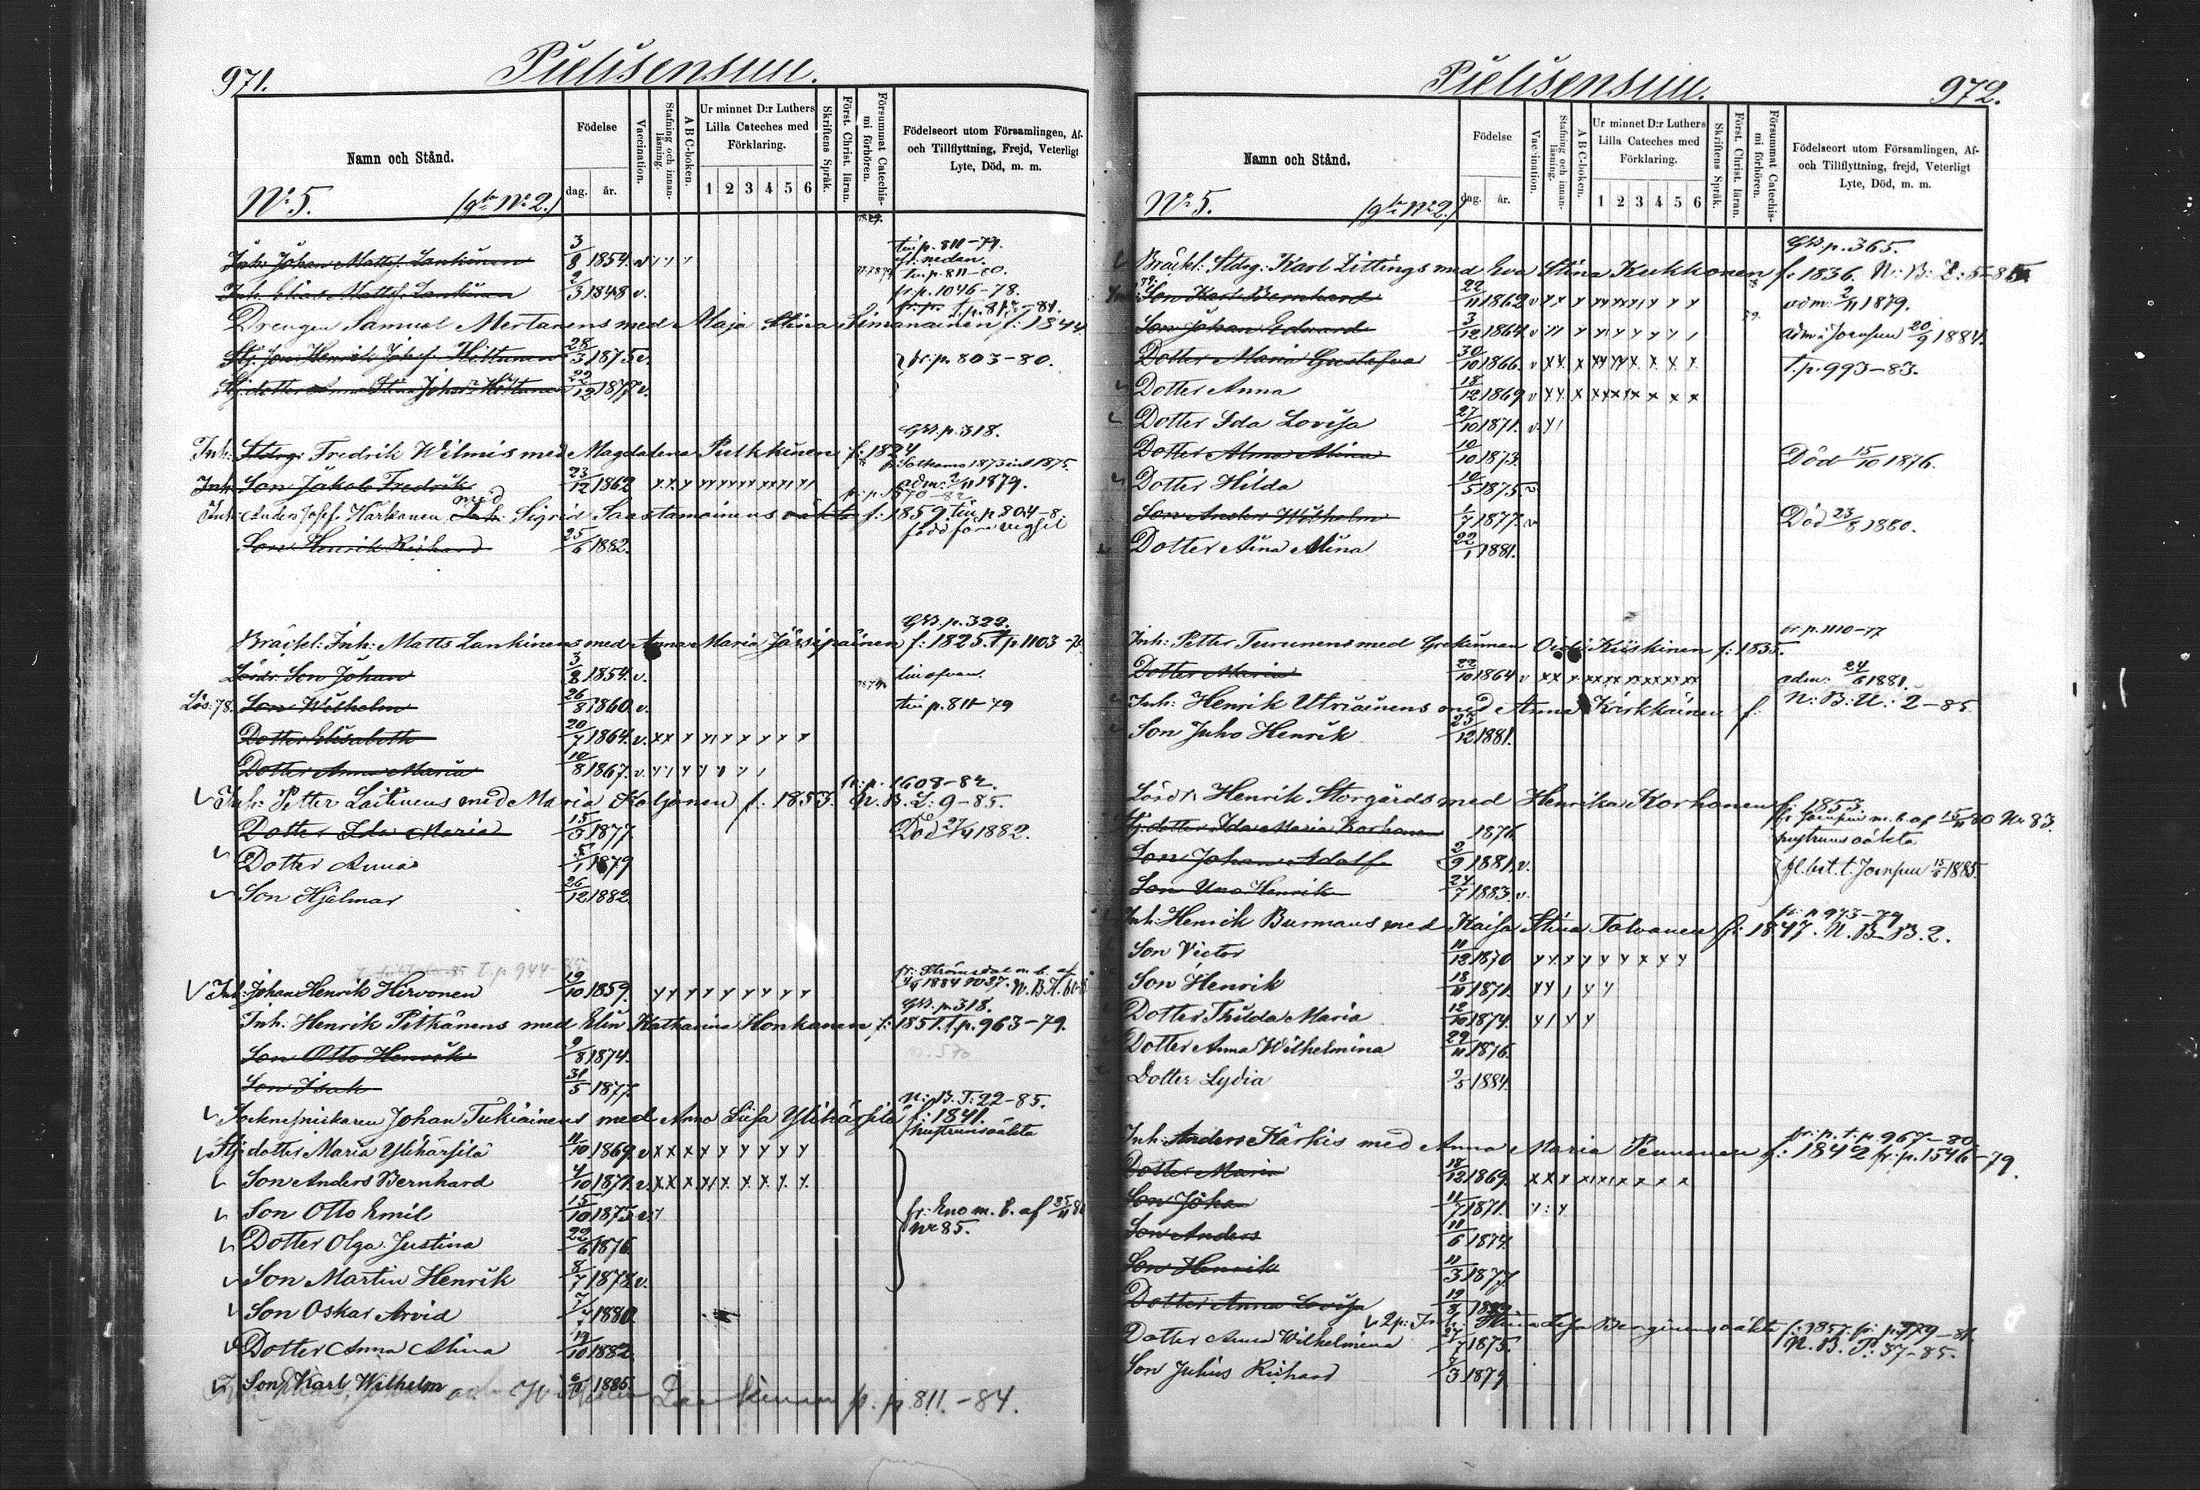 971. Pielisensuu.
Namn och Stånd.
Födelse
dag. år.
Vaccination.
Stafning och innanläsning.
A B C-boken.
Ur minnet D:r Luthers Lilla Cateches med Förklaring.
1 2 3 4 5 6
Skriftens Språk.
Först. Christ. läran.
Försummat Catechismi förhören.
Födelseort utom Församlingen, Af- och Tillflyttning, Frejd, Veterligt Lyte, Död, m. m.
No 5. (gla No 2.)
Inh: Johan Mattsf. Lankinen 3/8 1854. v. till p. 811-79.
fr. nedan.
Inh. Mattsf. Lankinen 2/3 1848 v. till p. 811-80.
fr p. 1046-78.
Drengen Samuel Mertanens med Maja Stina Simanainen f: 1844
Stj. son Henrik Josef Höttunen 28/3 1875 v. fr. p. 803-80.
Stj. dotter Stina Johan: Höttunen 22/12 1877 v.
GB. p. 318.
Inh: Stdrg: Fredrik Wilmis med Magdalena Pulkkinen f: 1824
Inh. Son Jakob Fredrik 23/12 1862 adm: 2/11 1879.
Inh: Anders Josef. Härkönen med Sigrid Saastamoinens oäkta f: 1859 till p 804-8.
Son Henrik Richard 25/6 1882.
GB. p. 322.
Bräckl: Inh: Matts Lankinens med Anna Maria Jässipäinen f: 1825. t p 1103-
Lösdr. Son Johan 3/8 1854. v. till ofvan.
Lös: 78. Son Wilhelm 26/8 1860. v. till p. 811-79
Dotter Elisabeth 20/7 1864. v.
Dotter Anna Maria 10/8 1867. v.
fr: p. 1608-82.
Inh: Petter Laitinens med Maria Koljonen f: 1853. N. B. L: 9-85.
Dotter Ida Maria 15/5 1877 Död 27/4 1882.
Dotter Anna 5/1 1879
Son Hjalmar 26/12 1882
t. p 944-85
Inh: Johan Henrik Hirvonen 19/10 1859.
GB. p. 318.
Inh: Henrik Pitkänens med Elin Katharina Honkanen f: 1851. t. p. 963-79.
Son Otto Henrik 9/8 1874.
Son Isak 31/5 1877.
N: B. T: 22-85.
Johan Tukiainens med Anna Liisa Ylihärsilä f: 1841.
Stj: dotter Maria Ylihärsilä 11/10 1869. v
Son Anders Bernhard 4/10 1872. v.
Son Otto Emil 15/10 1875 v. fr: Eno m. b. af
Nr 85.
Dotter Olga Justina 22/6 1876.
Son Martin Henrik 8/7 1878 v.
Son Oskar Arvid 1880.
Dotter Anna Alina 19/10 1882
Son Karl Wilhelm 1885.
p. p. 811.-84.
Pielisensuu. 972.
Namn och Stånd.
Födelse
dag. år.
Vaccination.
Stafning och innanläsning.
A B C-boken.
Ur minnet D:r Luthers Lilla Cateches med Förklaring.
1 2 3 4 5 6
Skriftens Språk.
Först. Christ. läran.
Försummat Catechismi förhören.
Födelseort utom Församlingen, Af- och Tillflyttning, frejd, Veterligt Lyte, Död, m. m.
No 5. (gla No 2.)
GB p. 365.
Bräckl: Stdrg: Karl Littings med Eva Stina Kukkonen f. 1836. N: B: L: 5-85
Son Karl Bernhard 22/11 1862 v adm: 2/11 1879.
Son Johan Edvard 3/12 1864 v adm: i Joensuu 20/9 1884.
Dotter Maria Gustafva 30/10 1866. v t. p. 993-83.
Dotter Anna 18/12 1869 v
Dotter Ida Lovisa 27/10 1871. v.
Dotter Alma Alina 10/10 1873. Död 15/10 1876.
Dotter Hilda 10/5 1875. v.
Son Anders Wilhelm 1/7 1877. v Död 23/8 1880.
Dotter Aina Alina 22/1 1881.
fr. p. 1110-77
Inh: Petter Turunens med Grekinnan Kiiskinen f: 1835.
Dotter Maria 22/10 1864 v adm: 24/6 1881.
Inh: Henrik Utriainens med Anna Kirkkäinen f: N: B: U: 2-85.
Son Juho Henrik 23/12 1881.
Lösdr. Henrik Storgårds med Henrika Korhonen f: 1853.
Stj. dotter Ida Maria Korhonen 1876 hustruns oäkta
Son Johan Adolf 2/9 1881. v.
Son Uno Henrik 24/7 1883. v. fl. bet. t. Joensuu 1885.
fr. p. 973-79
Inh: Henrik Burmans med Kaisa Stina Tolvanen f: 1847. N. B. B. 2.
Son Victor 11/12 1870
Son Henrik 18/11 1871.
Dotter Thilda Maria 12/10 1874.
Dotter Anna Wilhelmina 29/11 1876.
Dotter Lydia 2/5 1884
fr: p. t: p. 967-80.
Inh: Anders Kärkis med Anna Maria Pennanen f: 1842 fr: p. 1546-79.
Dotter Maria 18/12 1869.
Son Johan 11/7 1871.
Son Anders 11/6 1874.
Son Henrik 11/3 1877
Dotter Anna Lovisa 19/8
Inh: oäkta f: 1857. fr: p. 779-81.
Dotter Anna Wilhelmina 27/7 1875. N. B. P: 37-85.
Son Julius Richard 1/3 1879